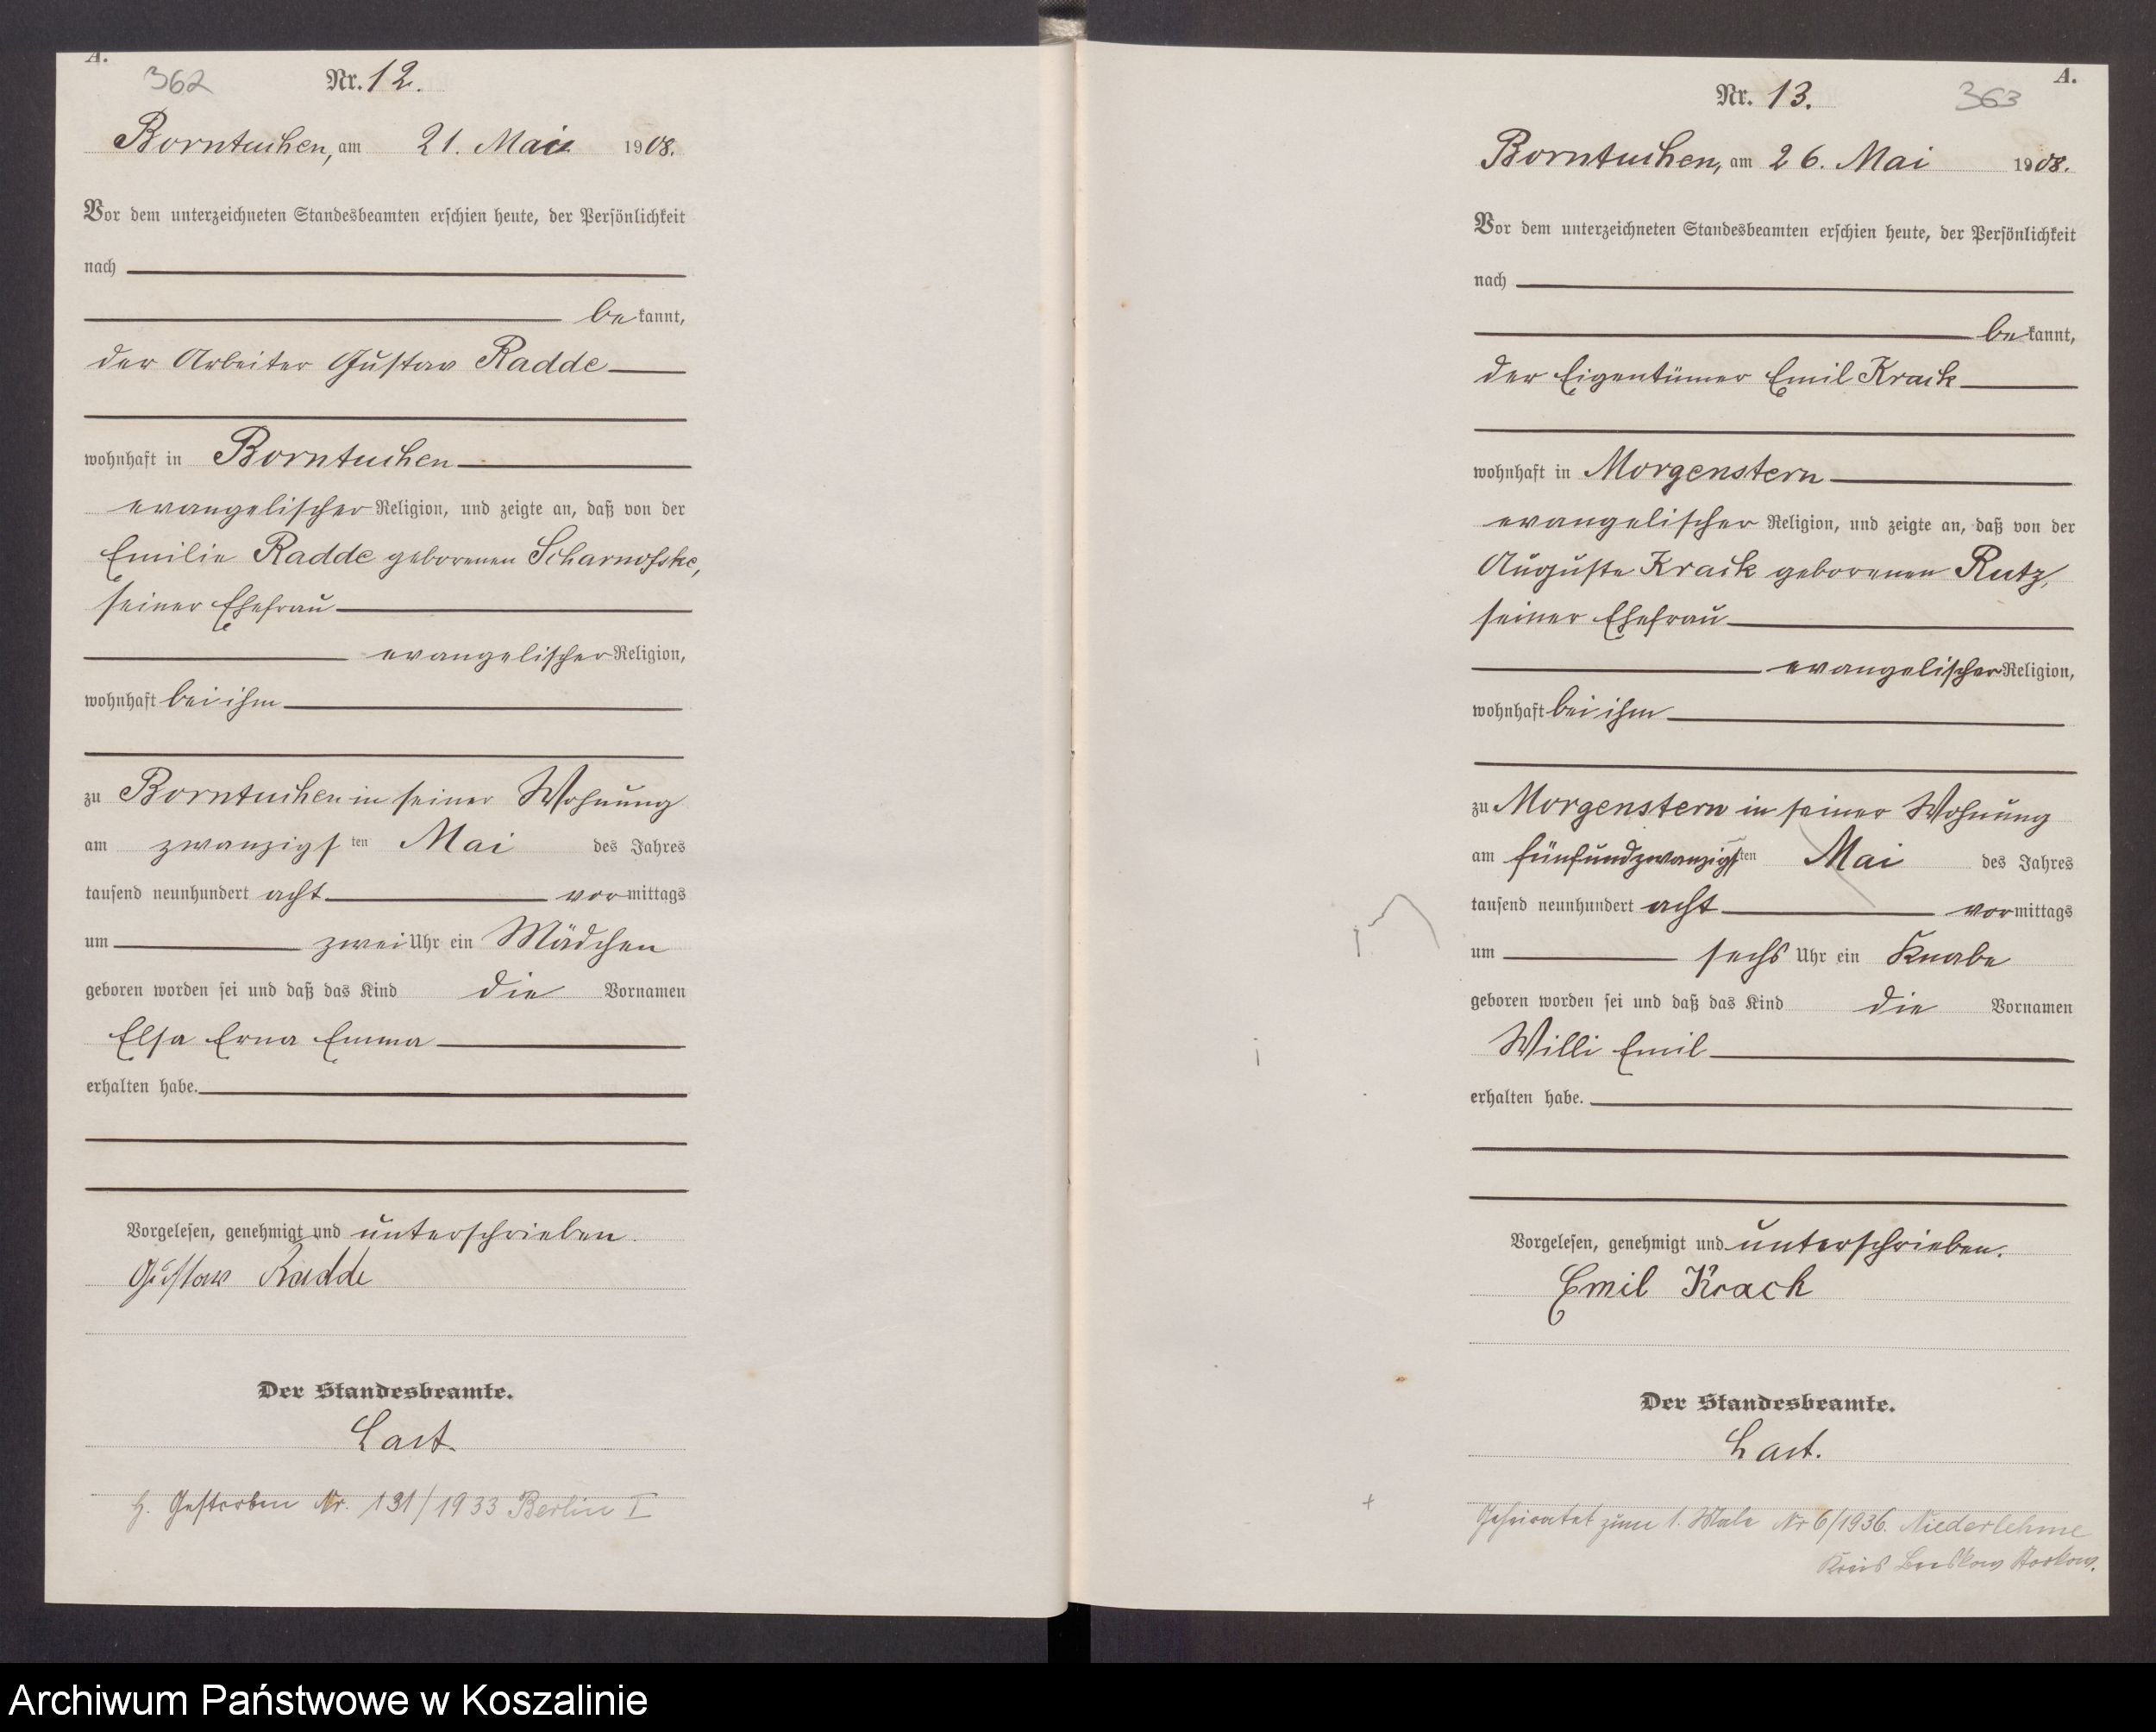 A.
362
Nr. 12.
Borntuchen, am 21. Mai 1908.
Vor dem unterzeichneten Standesbeamten erschien heute, der Persönlichkeit
nach
bekannt,
der Arbeiter Gustav Radde
wohnhaft in Borntuchen
evangelischer Religion, und zeigte an, daß von der
Emilie Radde geborenen Scharnofske,
seiner Ehefrau
evangelischer Religion,
wohnhaft bei ihm
zu Borntuchen in seiner Wohnung
am zwanzigsten Mai des Jahres
tausend neunhundert acht vormittags
um zwei Uhr ein Mädchen
geboren worden sei und daß das Kind die Vornamen
Elsa Erna Emma
erhalten habe.
Vorgelesen, genehmigt und unterschrieben.
Gustav Radde
Der Standesbeamte.
Last.
Gestorben Nr. 131/1933 Berlin I
A.
363
Nr. 13.
Borntuchen, am 26. Mai 1908.
Vor dem unterzeichneten Standesbeamten erschien heute, der Persönlichkeit
nach
bekannt,
der Eigentümer Emil Krack
wohnhaft in Morgenstern
evangelischer Religion, und zeigte an, daß von der
Auguste Krack geborenen Rutz,
seiner Ehefrau
evangelischer Religion,
wohnhaft bei ihm
zu Morgenstern in seiner Wohnung
am fünfundzwanzigsten Mai des Jahres
tausend neunhundert acht vormittags
um sechs Uhr ein Knabe
geboren worden sei und daß das Kind die Vornamen
Willi Emil
erhalten habe.
Vorgelesen, genehmigt und unterschrieben.
Emil Krack
Der Standesbeamte.
Last.
Geheiratet zum 1. Male Nr 6/1936. Niederlehme
Kreis Beeskow Storkow.
Archiwum Państwowe w Koszalinie